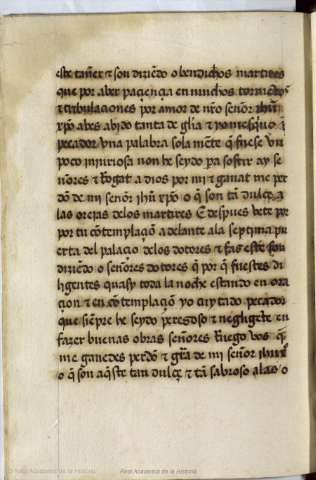 este tañer & son diziẽdo o bendichos martires
que por aber paçiençia en muchos tormẽtos
& tribulaciones por amor de nrõ señor ihũ
xpõ abes abido tanta de glia &
pecador una palabra sola mẽte q̃ fuese un
poco injuriosa non he seydo pa sofrir ay se
ñores & Rogat a dios por mi & ganat me per
dõ de mi señor ihũ xpõ o q̃ son tã dulçe a
las orejas de los martires E despues bete por
por tu cõtemplaçiõ adelante a la septima pu
erta del palaçio de los dotores & faz este son
diziẽdo o señores dotores q̃ por q̃ fuestes di
ligentes quasy toda la noche estando en ora
çion & en cõtemplaçiõ yo cuytado pecador
que siẽpre he seydo peregoso & negligẽte en
fazer buenas obras señores Ruego vos q̃
me ganedes perdõ & grã de mi señor ihũ
o q̃ son aq̃ste tan dulçe & tã sabroso a las o
Real Academia de la Historia